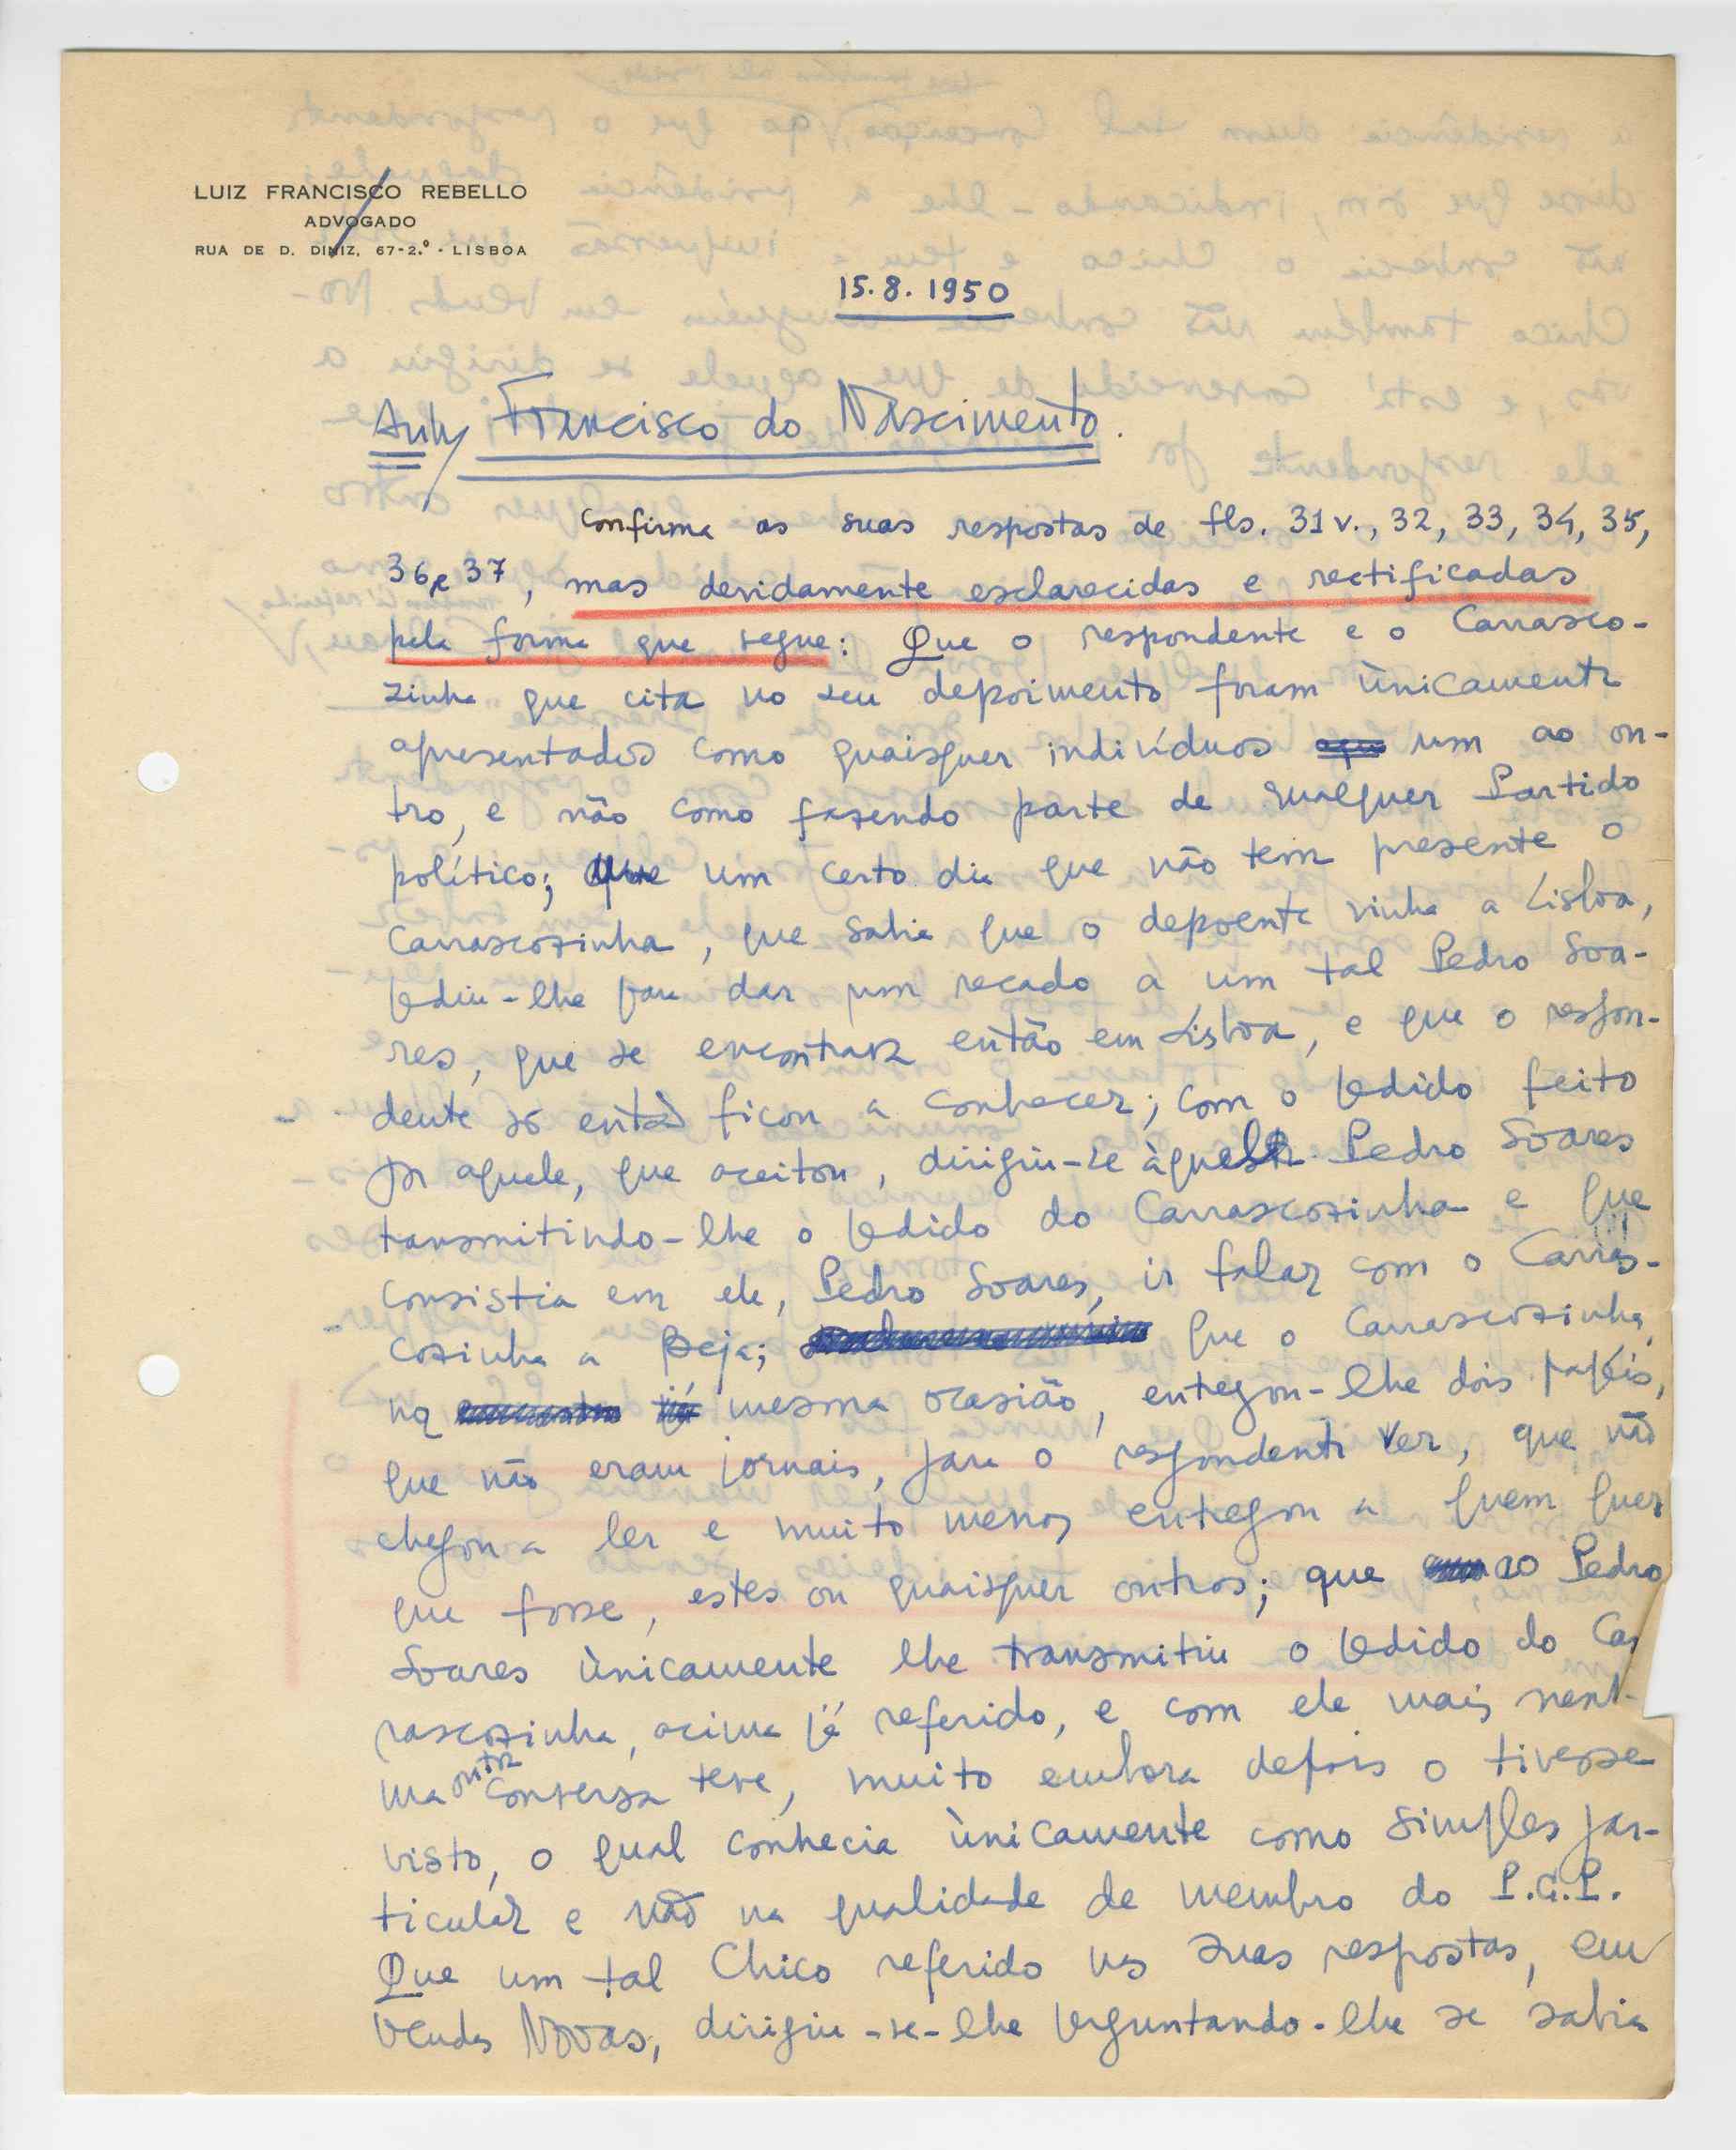 LUIZ FRANCISCO REBELLO
ADVOGADO
RUA DE D. DINIZ, 67-2.º - LISBOA
15.8.1950
Francisco do Nascimento.
Confirma as suas respostas de fls. 31v., 32, 33, 34, 35,
36 e 37, mas devidamente esclarecidas e rectificadas
pela forma que segue: Que o respondente e o Carrasco-
zinha que cita no seu depoimento foram ùnicamente
apresentados como quaisquer indivíduos um ao ou-
tro, e não como fazendo parte de qualquer Partido
político; que um certo dia que não tem presente o
Carrascozinha, que sabia que o depoente vinha a Lisboa,
pediu-lhe para dar um recado a um tal Pedro Soa-
res, que se encontrava então em Lisboa, e que o respon-
dente só então ficou a conhecer; com o pedido feito
por aquele, que aceitou, dirigiu-se àquele Pedro Soares
transmitindo-lhe o pedido do Carrascozinha e que
consistia em ele, Pedro Soares, ir falar com o Carras-
cozinha a Beja; que o Carrascozinha,
na mesma ocasião, entregou-lhe dois papéis,
que não eram jornais, para o respondente ver, que não
chegou a ler e muito menos entregou a quem quer
que fosse, estes ou quaisquer outros; que ao Pedro
Soares ùnicamente lhe transmitiu o pedido do Car
rascozinha, acima já referido, e com ele mais nenhu-
ma outra conversa teve, muito embora depois o tivesse
visto, o qual conhecia ùnicamente como simples par-
ticular e não na qualidade de membro do P.C.P.
Que um tal Chico referido nas suas respostas, em
Vendas Novas, dirigiu-se-lhe perguntando-lhe se sabia